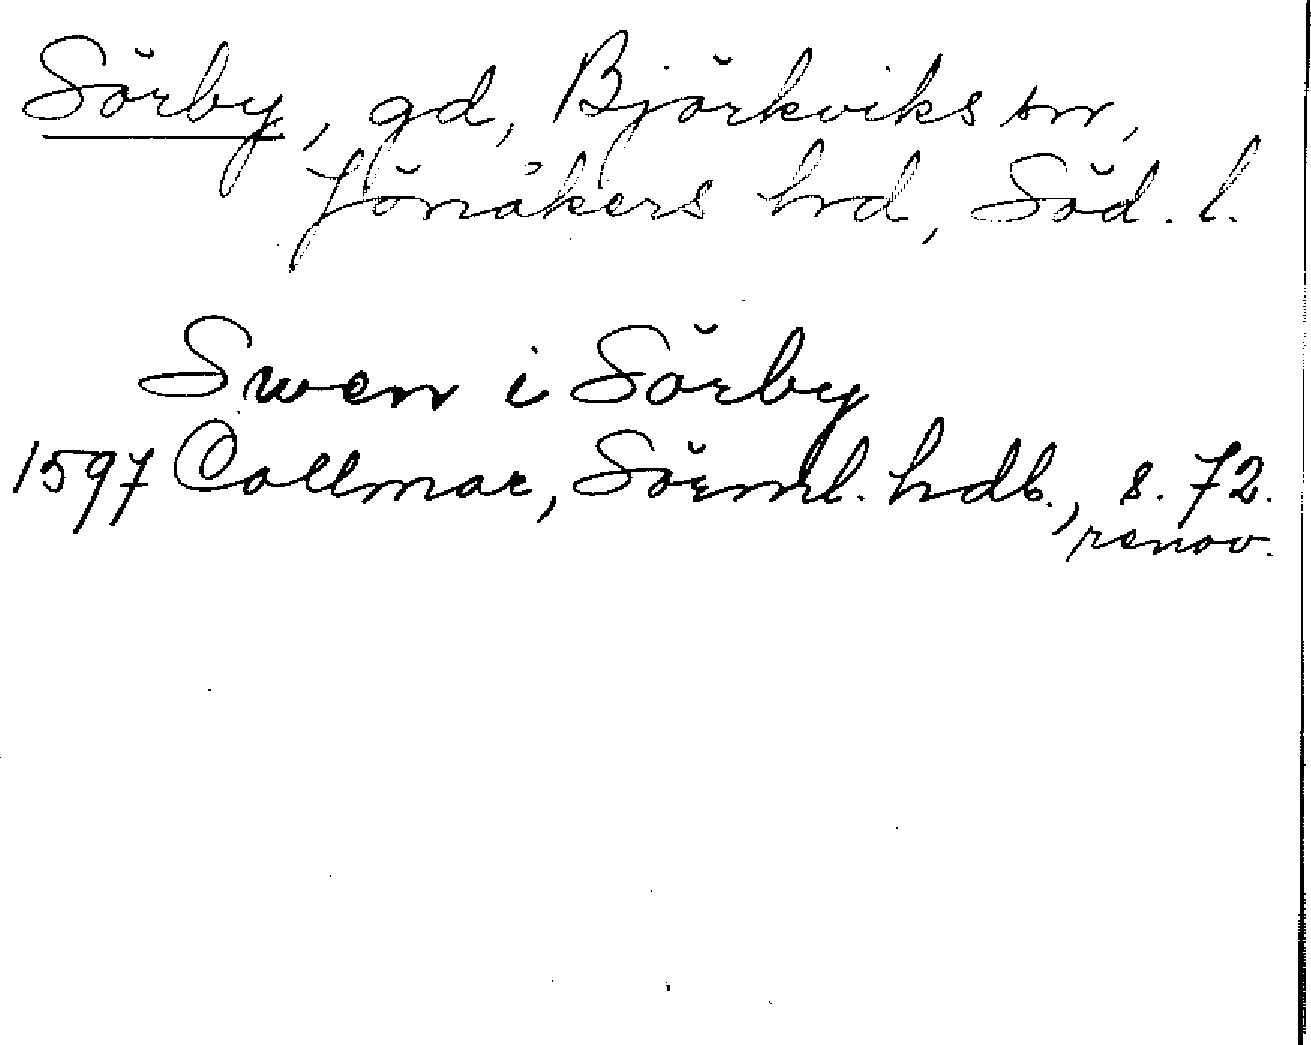 Sörby, gd, Björkviks sn,
Jönåkers hrd, Söd. l.
Swen i Sörby
1597 Collmar, Sörml. hdb., s. 72.
renov.